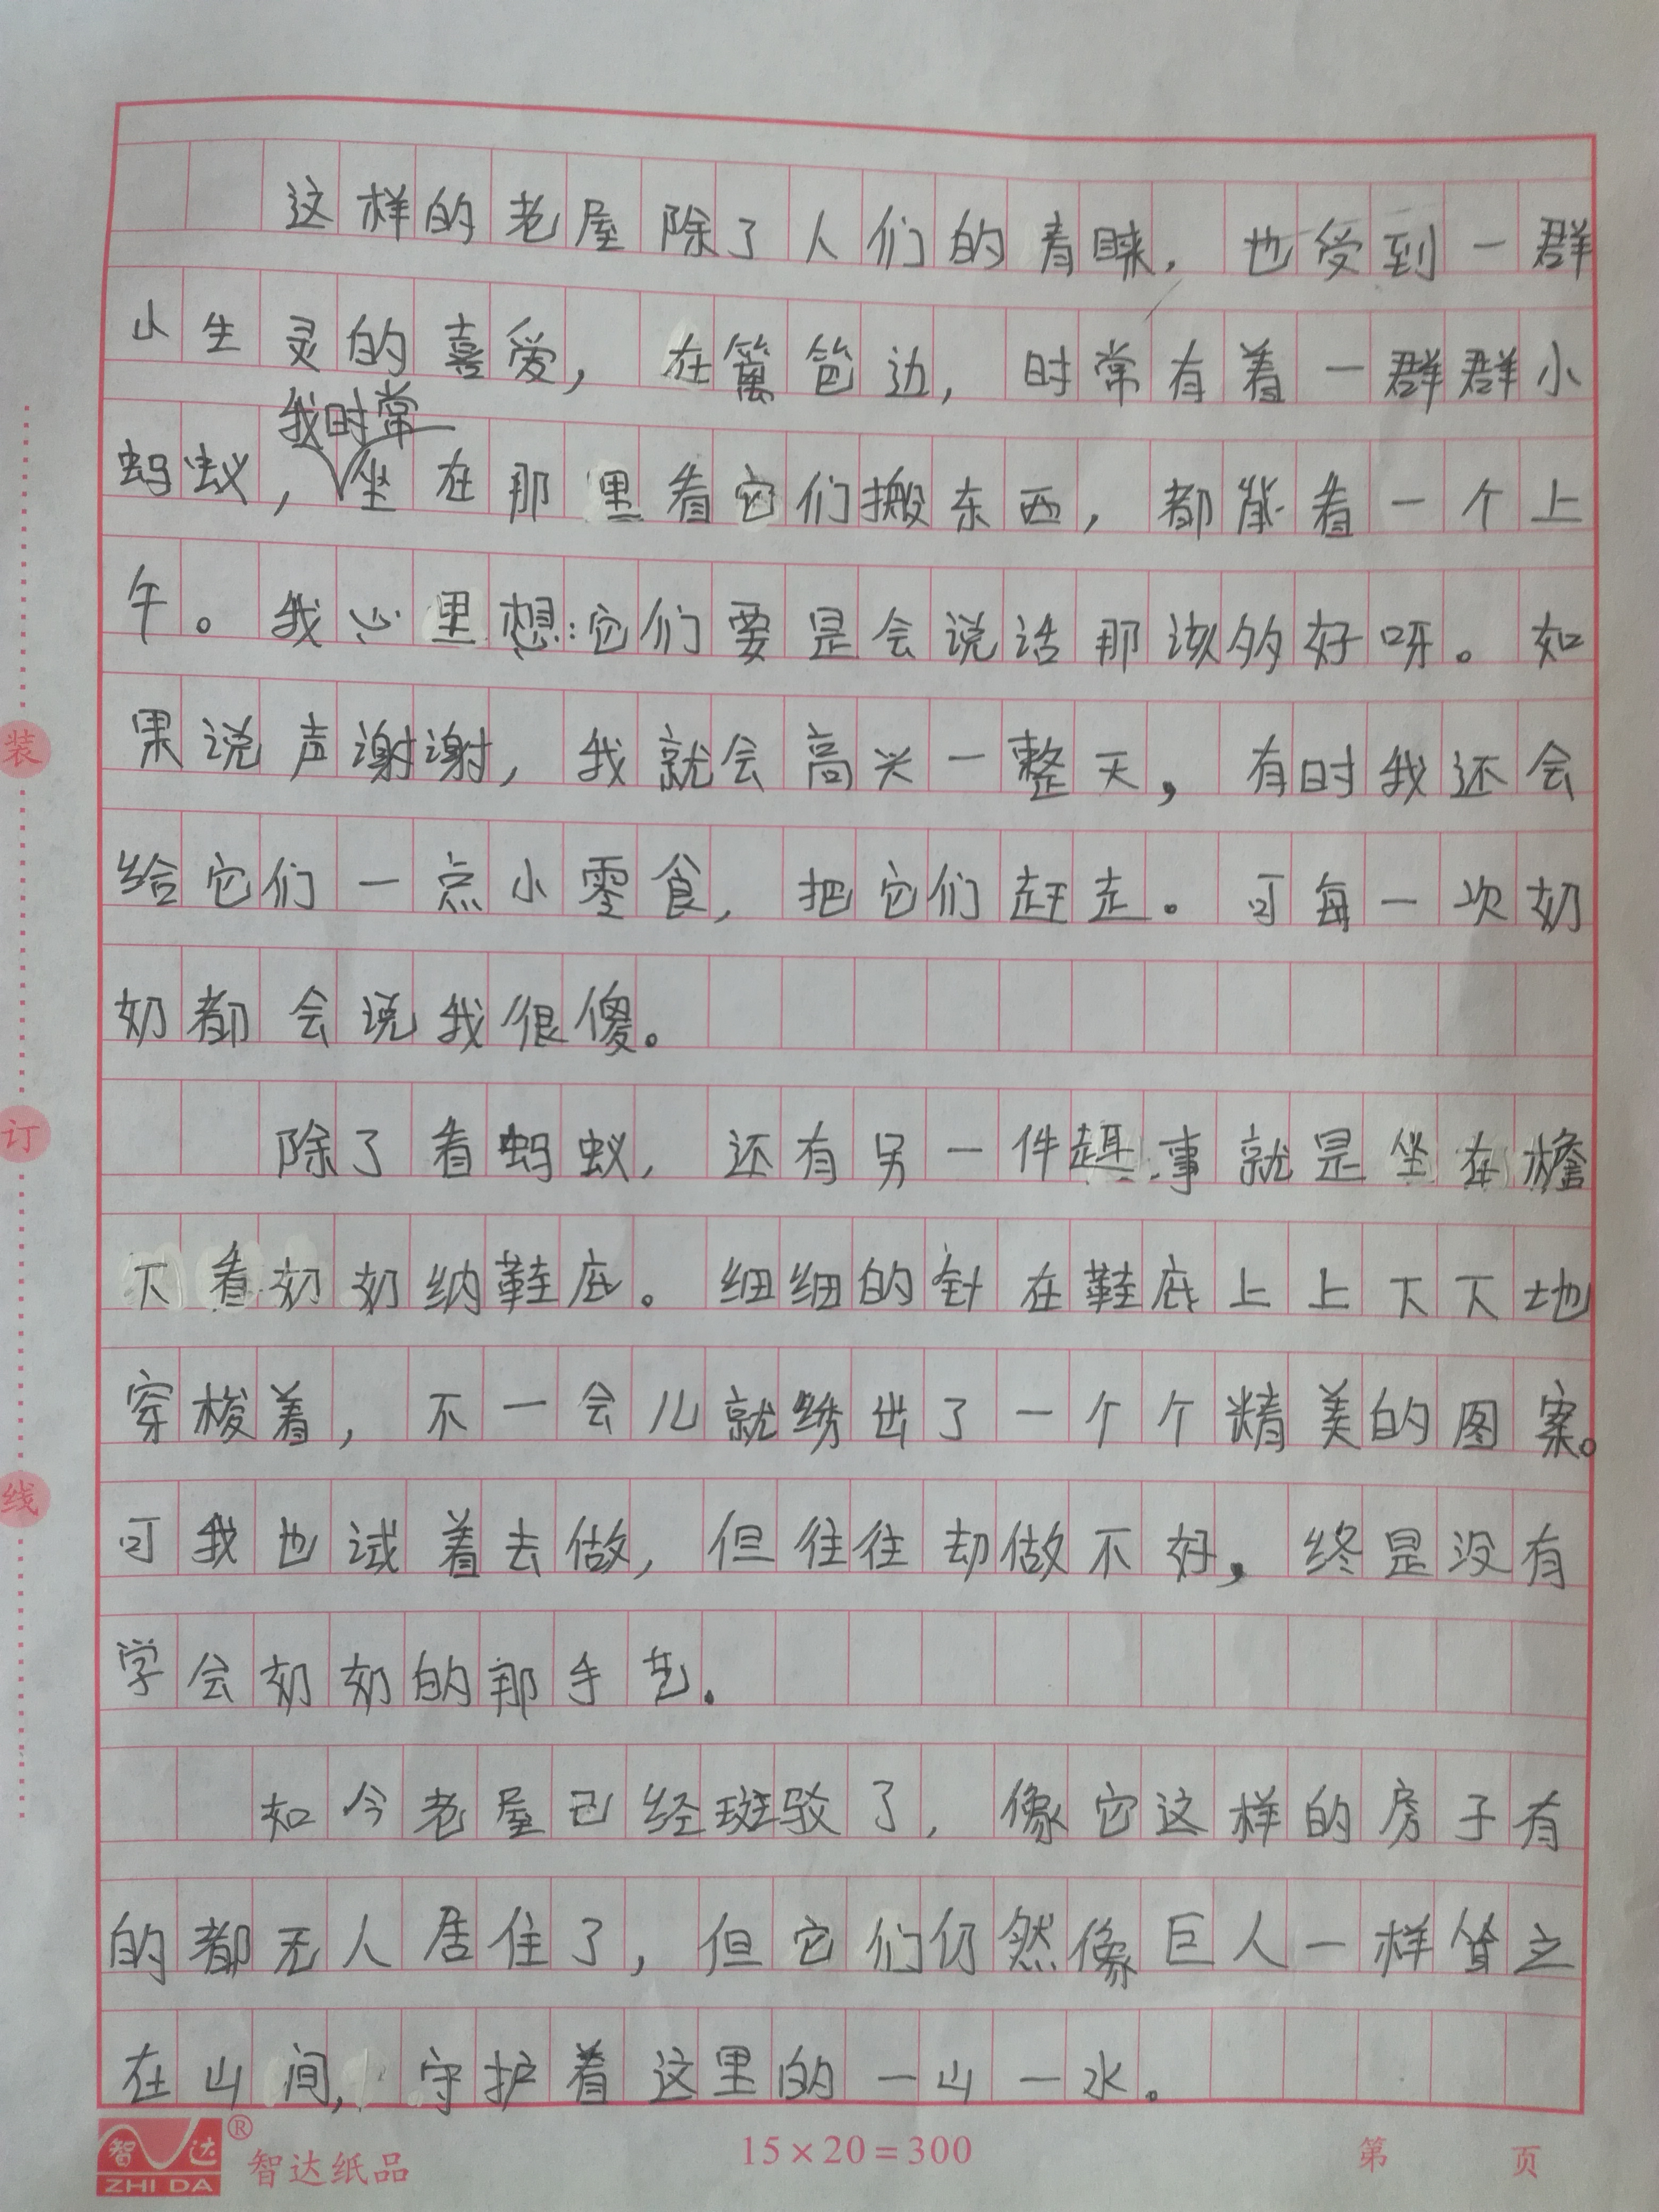 这样的老屋除了人们的青睐，也受到一群
小生灵的喜爱，在篱笆边，时常有着一群群小
我时常
蚂蚁，坐在那里看它们搬东西，都能看一个上
午。我心里想：它们要是会说话那该多好呀。如
果说声谢谢，我就会高兴一整天，有时我还会
给它们一点小零食，把它们赶走。可每一次奶
奶都会说我很傻。
除了看蚂蚁，还有另一件趣事就是坐在檐
下看奶奶纳鞋底。细细的针在鞋底上上下下地
穿梭着，不一会儿就绣出了一个个精美的图案。
可我也试着去做，但往往却做不好，终是没有
学会奶奶的那手艺.
如今老屋已经斑驳了，像它这样的房子有
的都无人居住了，但它们仍然像巨人一样耸立
在山间，守护着这里的一山一水。
装
订
线
智达
ZHI DA
®
智达纸品
15×20=300
第 页